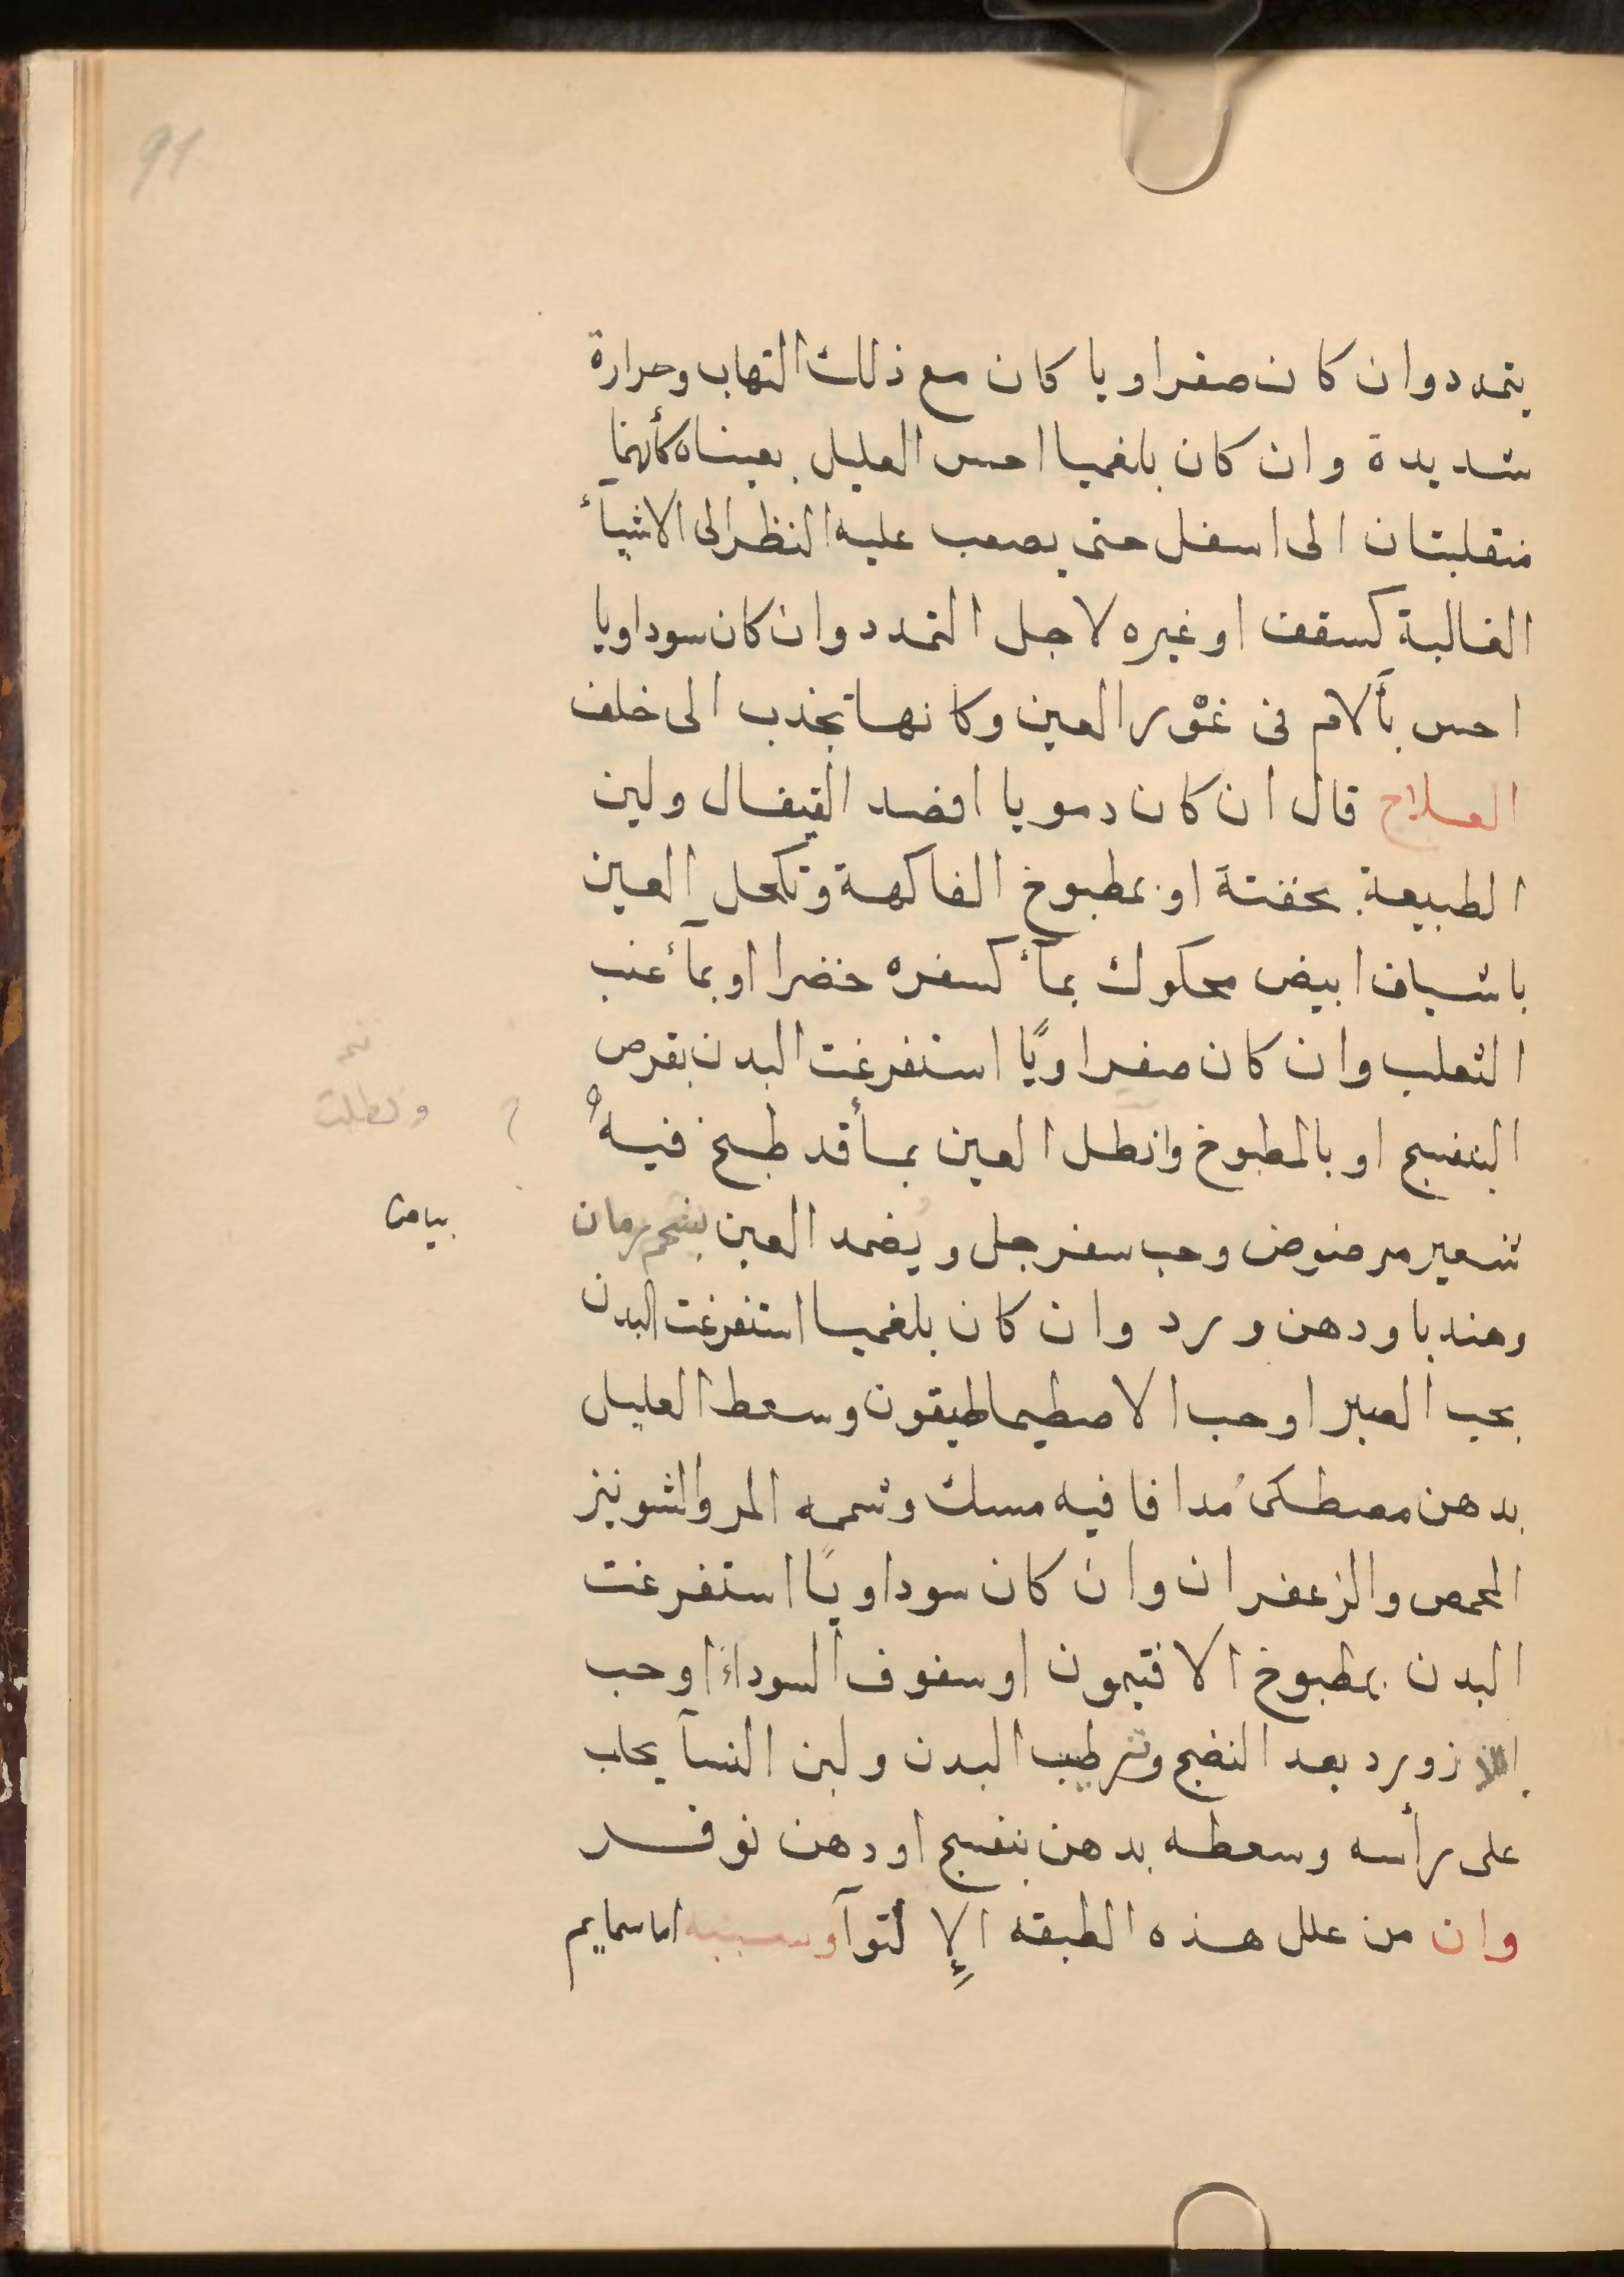 91
يتمدد وان كان صفراويا كان مع ذلك التهاب وحرارة
شديدة وان كان بلغميا احس العليل بعيناه كأنهما
منقلبتان الى اسفل حتى يصعب عليه النظر الى الاشيآء
الغالبة كسقف او غيره لاجل التمدد وان كان سوداويا
احس بألام فى غوْر العين وكانها تجذب الى خلف
العلاج قال ان كان دمويا افصد القيفال ولين
الطبيعة بحقنة او بمطبوخ الفاكهة وتكحل العين
باشياف ابيض محكوك بمآء كسفره خضرا او بمآء عنب
الثعلب وان كان صفراويًا استفرغت البدن بقرص
البنفسج او بالمطبوخ وانطل العين بمأقد طبخ فيه
ونطلت
شعير مرضوض وحب سفرجل ويضمد العين بشحم رمان
وهندبا ودهن ورد وان كان بلغميا استفرغت البدن
بحب الصبر او حب الاصطيماطيقون وسعط العليل
بدهن مصطكى مُدافا فيه مسك وشممه المر والشونيز
المحمص والزعفران وان كان سوداويًا استفرغت
البدن بمطبوخ الافتيمون او سفوف السوداء او حب
زورد بعد النضج وترطيب البدن ولبن النسآ يحلب
على رأسه وسعطه بدهن بنفسج او دهن نوفر
وان من علل هذه الطبقه الإلتوآ وسببه اما